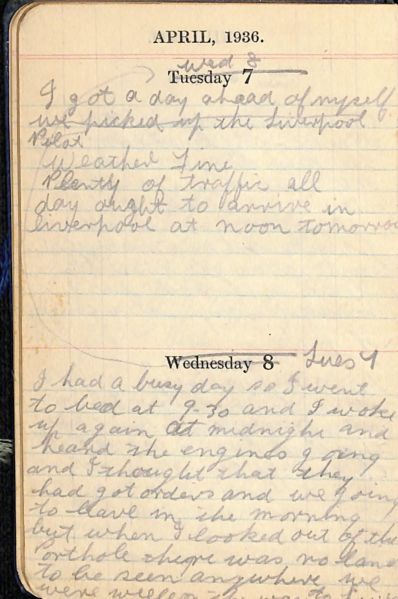 APRIL, 1936.
Wed 8
Tuesday 7
I got a day ahead of myself
we picked up the Liverpool
Pilot
Weather Fine
Plenty of traffic all
day ought to arrive in
liverpool at noon tomorrow
Wednesday 8 Tues 7
I had a busy day so I went
to bed at 9-30 and I woke
up again at midnight and
heard the engines going
and I thought that they
had got orders and we going
to leave in the morning
but when I looked out of the
Porthole there was no land
to be seen anywhere we
were